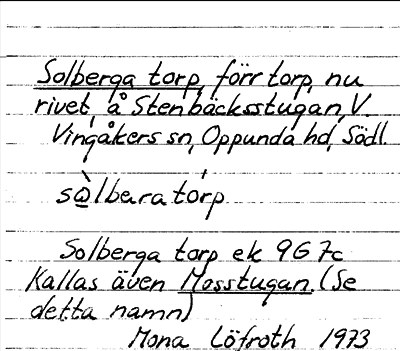 Solberga torp, förr torp, nu
rivet, å Stenbäcksstugan, V.
Vingåkers sn, Oppunda hd, Södl.
sò̲lbɐratórp
Solberga torp ek 9G7c
Kallas även Mosstugan. (Se
detta namn)
Mona Löfroth 1973